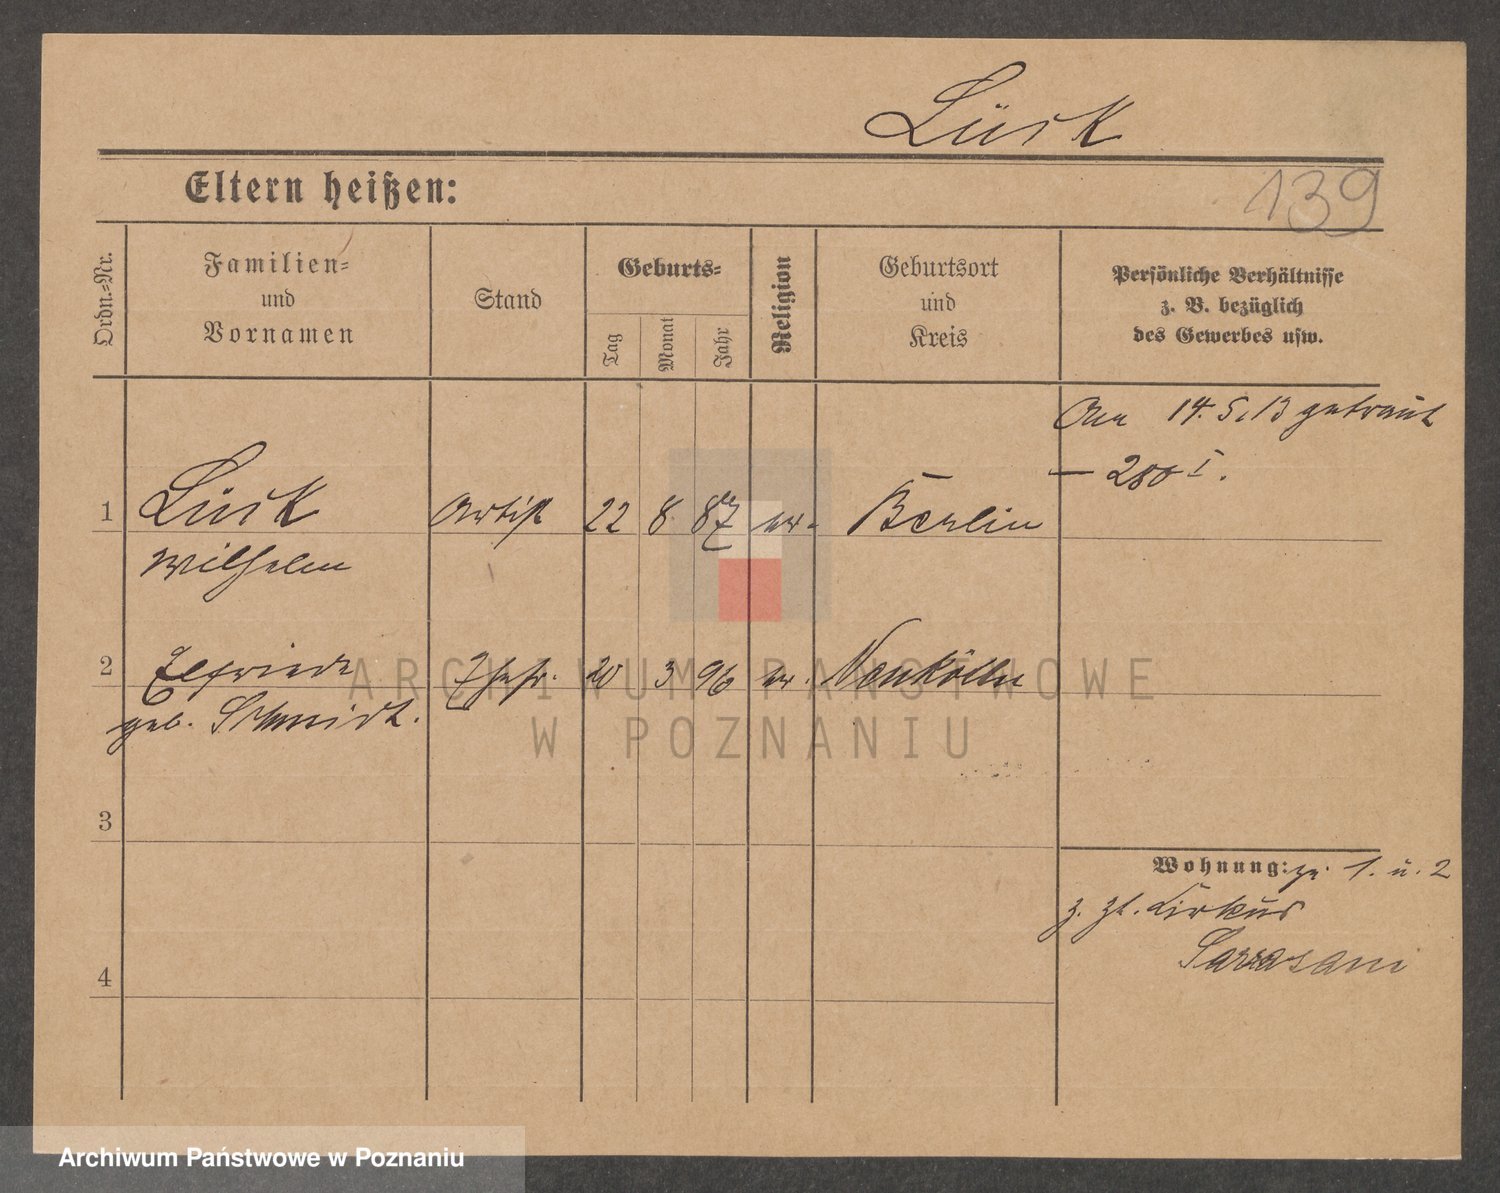 Lüsk
139
Eltern heißen:
Ordn.-Nr.
Familien-
und
Vornamen
Stand
Geburts-
Tag
Monat
Jahr
Religion
Geburtsort
und
Kreis
Persönliche Verhältnisse
z. B. bezüglich
des Gewerbes usw.
Am 14.5.13 getraut
— 280 I.
1 Lüsk Artist 22 8 87 ev. Berlin
Wilhelm
2 Elfriede Ehefr. 20 3 96 ev. Neukölln
geb. Schmidt.
3
Wohnung: zu 1. u. 2
z. Zt. Zirkus
Sarrasani
4
ARCHIWUM PAŃSTWOWE
W POZNANIU
Archiwum Państwowe w Poznaniu